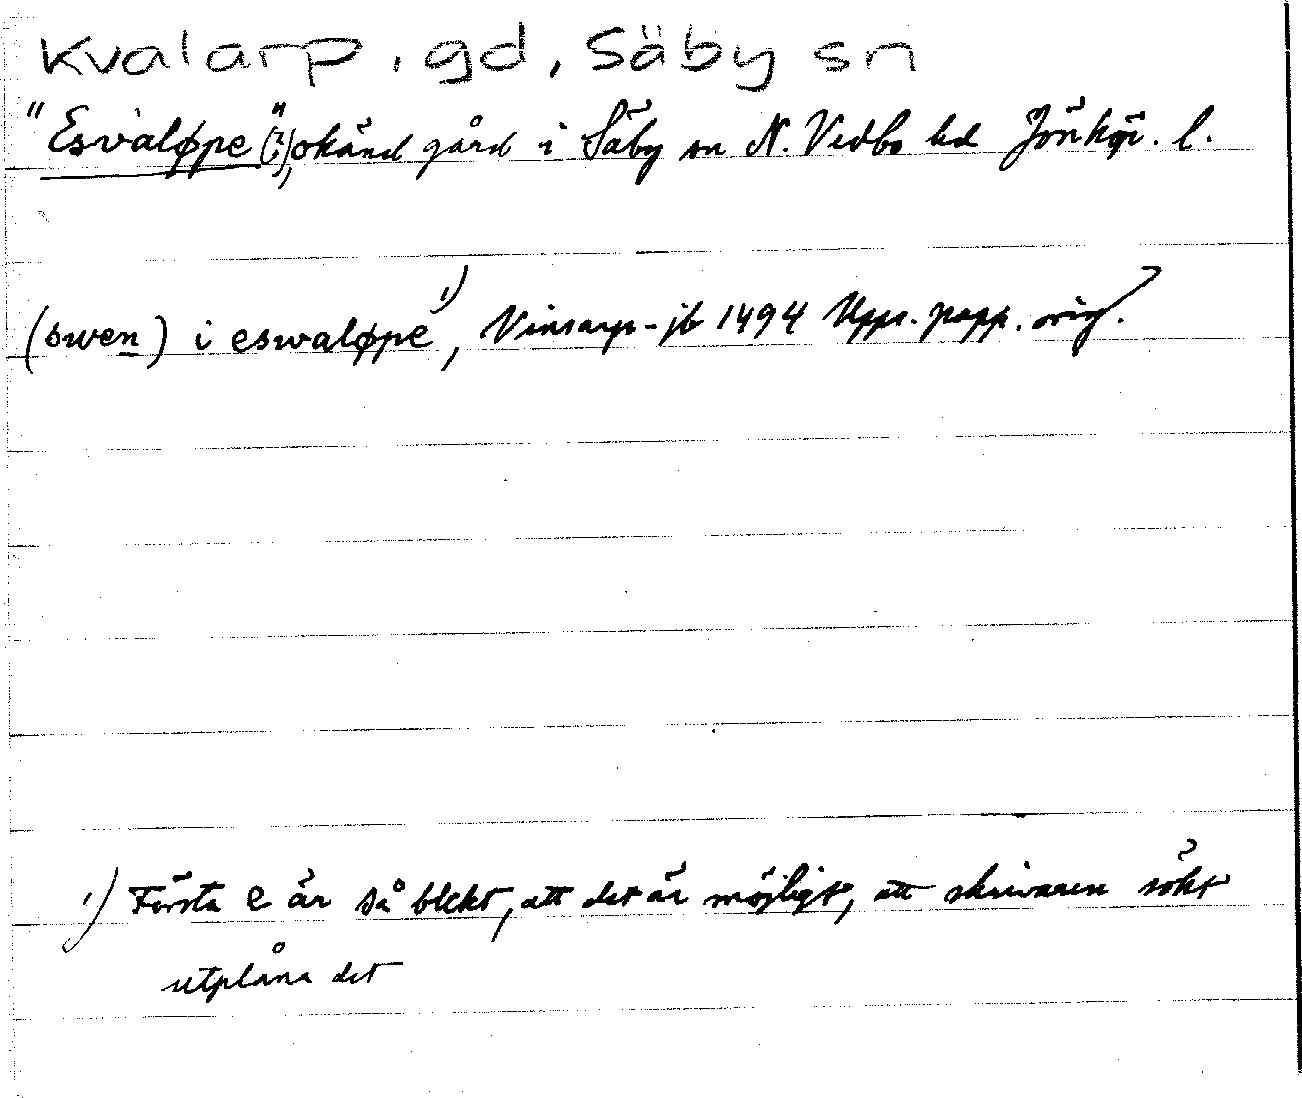 Kvalarp, gd, Säby sn
"Esvaløpe"(?), okänd gård i Säby sn N. Vedbo hd Jönkö. l.
(swen) i eswaløpe¹⁾, Vinsarp-jb 1494 Upps. papp. orig.
¹⁾ Första e är så blekt, att det är möjligt, att skrivaren sökt
utplåna det